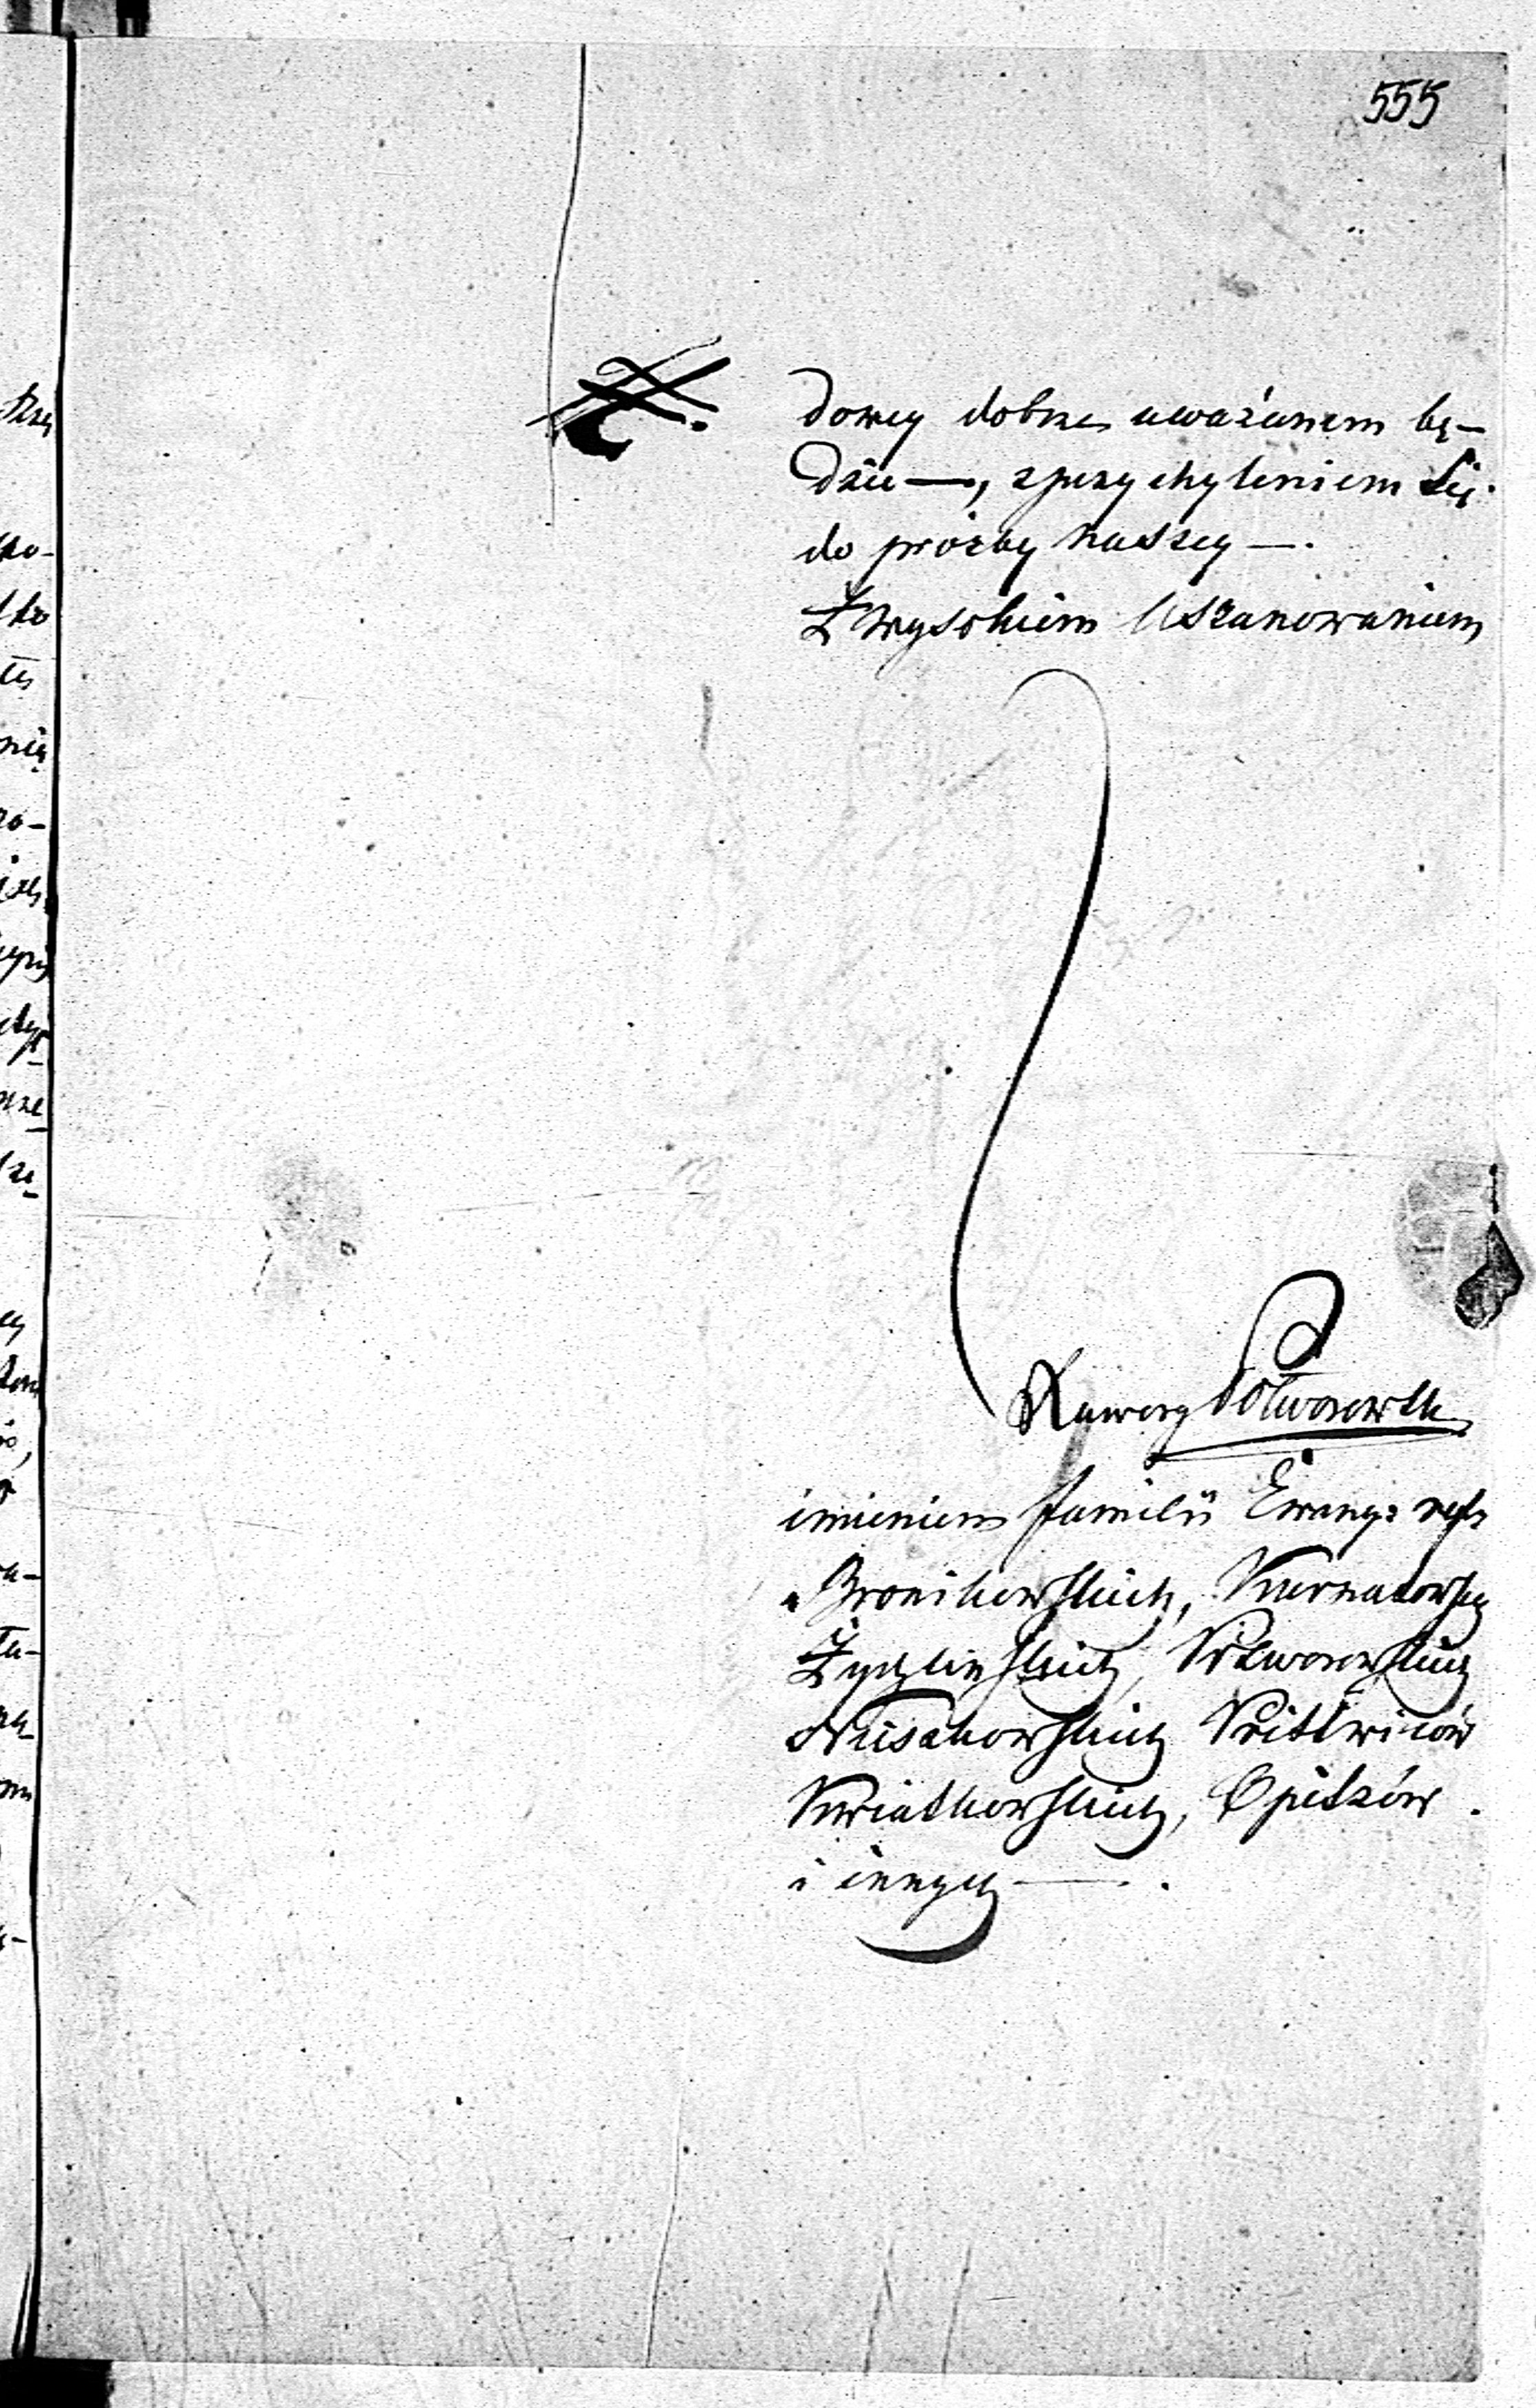 555
dowey dobrze uważanem bę-
dzie—, z przychyleniem Się
do proźby naszey—.
Z wysokiem Uszanowaniem
Xawery Potworowsk
imieniem familii Ewang: ref:
Bronikowskich, Kurnatowsk
Żychlinskich, Potworowskich
Nieszkowskich Prittwiców
Kwiatkowskich, Opitzów.
i innych—.